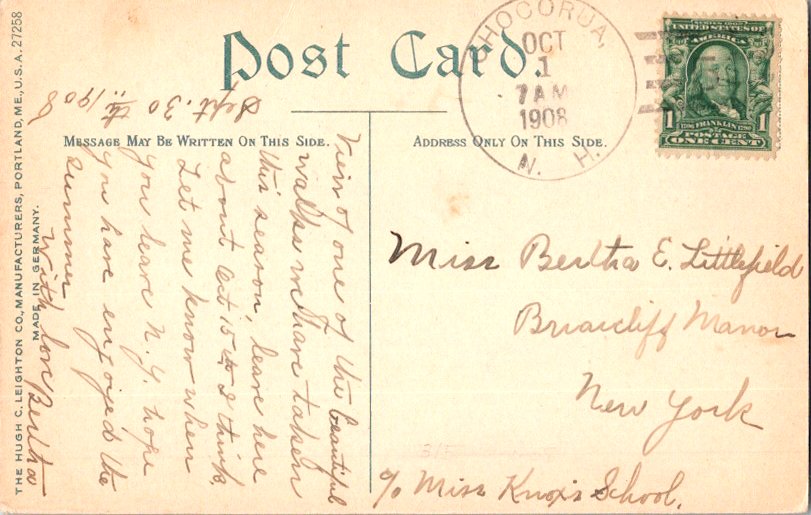 THE HUGH C. LEIGHTON CO., MANUFACTURERS, PORTLAND, ME., U.S.A. 27258
MADE IN GERMANY.
Post Card.
MESSAGE MAY BE WRITTEN ON THIS SIDE.
ADDRESS ONLY ON THIS SIDE.
CHOCORUA,
OCT
1
7 AM
1908
N. H.
SERIES 1902
UNITED STATES OF
AMERICA
1 1
1706 FRANKLIN 1790
POSTAGE
ONE CENT
Sept. 30th. 1908
View of one of the beautiful
walks we have taken
this season, leave here
about Oct 15th I think
Let me know when
you leave N.Y. hope
you have enjoyed the
summer
With love Bertha
Miss Bertha E. Littlefield
Briarcliff Manor
New York
c/o Miss Knox's School.